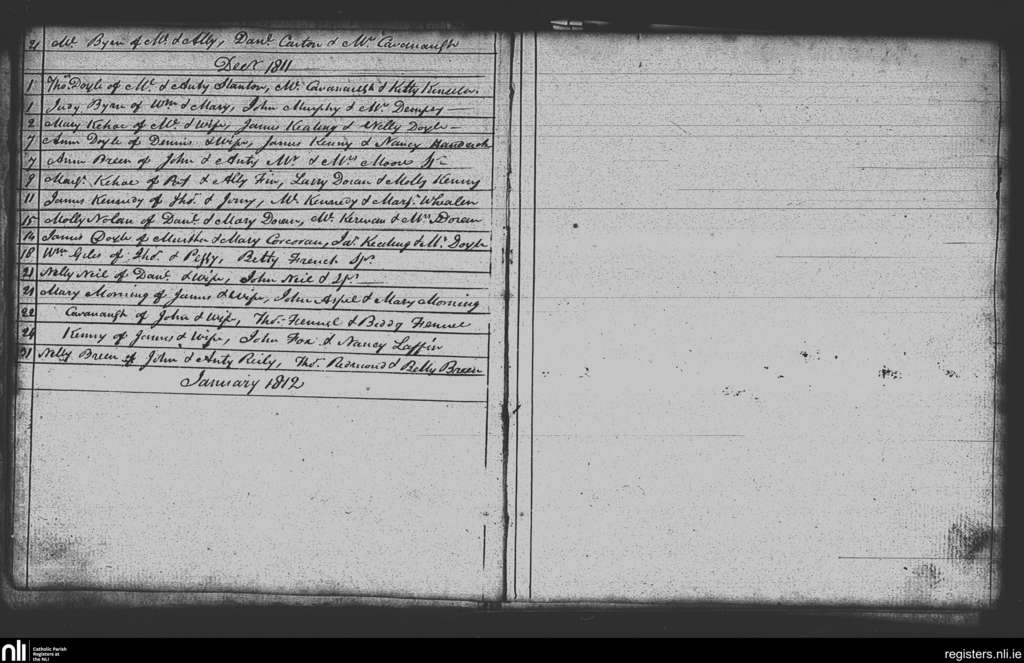 21 Mr. Byrn of Mr. & Ally, Danl. Carton & Mrs Cavanaugh
Decr. 1811
1 Thos. Doyle of Ml. & Anty Stanton, Ml. Cavanaugh & Kitty
1 Judy Byrn of Wm & Mary, John Murphy & Mrs Dempsy
2 Mary Kehoe of Ml. & Wife, James Keating & Nelly Doyle
7 Ann Doyle of Dennis & Wife, James Kenny & Nancy
7 Anne Breen of John & Anty Mr. & Mrs Moore Sprs
8 Margt. Kehoe of Pat & Ally Fin, Larry Doran & Molly Kenny
11 James Kennedy of Thos. & Jony, Ml. Kennedy & Margt. Whealen
15 Molly Nolan of Danl. & Mary Doran, Ml. Kerevan & Mrs Doran
14 James Doyle of Murtha & Mary Corcoran, Jas. Keating & Doyle
18 Wm Giles of Thos. & Peggy, Betty French Spr.
21 Nelly Neil of Danl. & Wife, John Neil & Spr.
21 Mary Morning of James & Wife, John Aspel & Mary Morning
22 Cavanaugh of John & Wife, Thos. Fennel & Biddy Fennel
24 Kenny of James & Wife, John Fox & Nancy Laffin
31 Nelly Breen of John & Anty Reily, Thos. Redmond & Betty Breen
January 1812
nli
Catholic Parish
Registers at
the NLI
registers.nli.ie